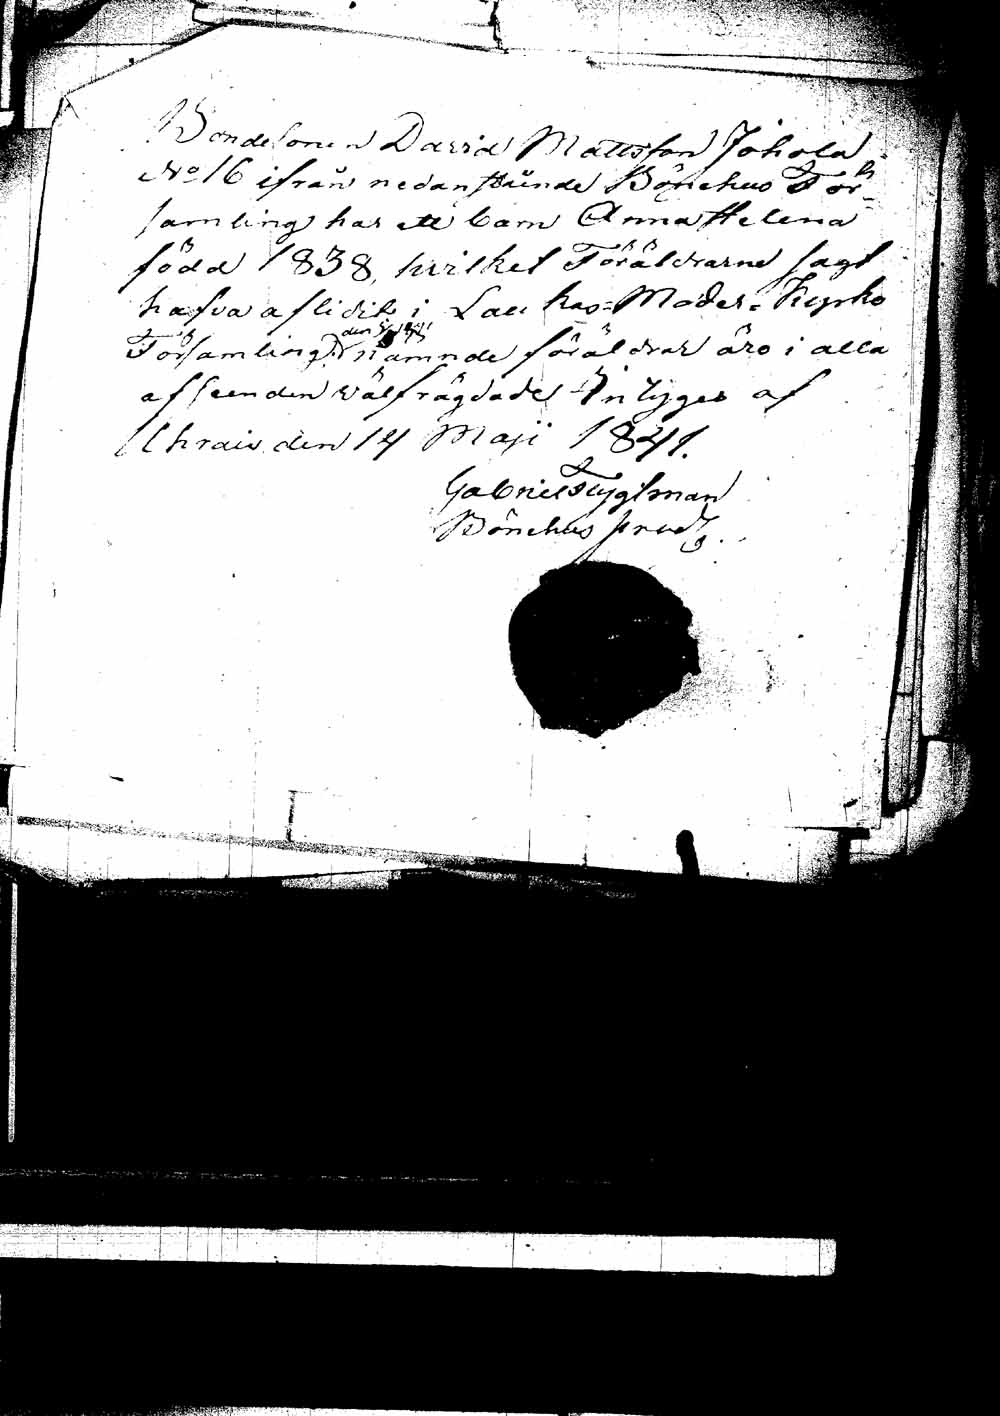 Bondesonen David Mattsson Johola
No 16 ifrån nedanstående Bönehus För-
samling har ett barn Anna Helena
född 1838, hvilket Föräldrarne sagt
hafva aflidit i Lau kas-Moder-Kyrko
Församling. nämnde föräldrar äro i alla
afseenden välfrägdade Intygas af
Uhrais den 14 Maji 1841.
Gabriel Flygtman
Bönehus pred.